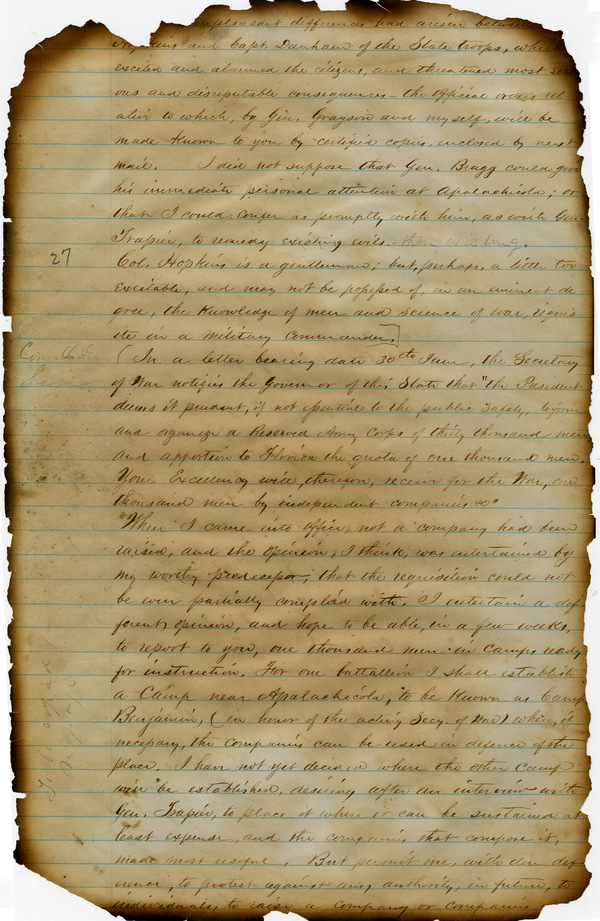 unpleasant differences had arisen betwe
Hopkins and Capt. Danham of the State troops, whi
excited and alarmed the citizens, and threatened most seri
ous and disreputable consequences the official orders rel
ative to which, by Gen. Grayson and myself, will be
made known to you by certified copies, enclosed by next
mail. I did not suppose that Gen. Bragg could give
his immediate personal attention at Apalachicola; or
that I could confer as promptly with him, as with Gen.
Trapier, to remedy existing evils. then existing.
27
Col. Hopkins is a gentleman; but, perhaps, a little too
excitable, and may not be possessed of, in an eminent de
gree, the knowledge of men and science of war, requis-
ite in a military commander.]
(In a letter bearing date 30th June, the Secretary
of War notifies the Governor of this State that "the President
deems it prudent, if not essential to the public safety, to form
and organize a Reserved Army Corps of thirty thousand men
and apportion to Florida the quota of one thousand men.
Your Excellency will, therefore, receive for the War, one
thousand men by independent companies &c"
When I came into office, not a company had been
raised, and the opinion, I think, was entertained by
my worthy predecessor, that the requisition could not
be even partially complied with. I entertain a dif
ferent opinion, and hope to be able, in a few weeks,
to report to you, one thousand men in camps ready
for instruction. For one battallion I shall establish
a Camp near Apalachicola, to be known as Camp
Benjamin, (in honor of the acting Secy. of War) where, if
necessary, the companies can be used in defence of the
place. I have not yet decided where the other Camp
will be established, desiring after an interview with
Gen. Trapier, to place it where it can be sustained at
least expense, and the companies that compose it,
made most useful. But permit me, with due def
erence, to protest against any authority, in future, to
individuals, to raise a company or companies